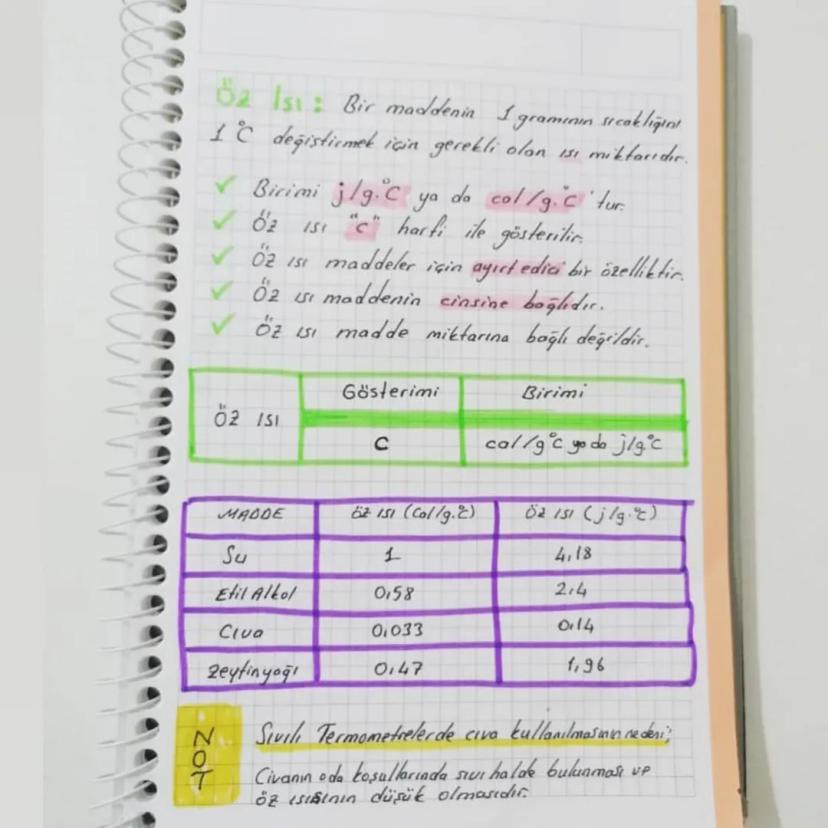 Öz Isı: Bir maddenin 1 gramının sıcaklığını
1°C değiştirmek için gerekli olan ısı miktarıdır.
✓ Birimi j/g.°C ya da cal/g.°C 'tur.
✓ Öz ısı "c" harfi ile gösterilir.
✓ Öz ısı maddeler için ayırt edici bir özelliktir.
✓ Öz ısı maddenin cinsine bağlıdır.
✓ Öz ısı madde miktarına bağlı değildir.
ÖZ ISI
Gösterimi Birimi
C cal/g°C ya da j/g°C
MADDE ÖZ ISI (Cal/g.°C) ÖZ ISI (j/g.°C)
Su 1 4,18
Etil Alkol 0,58 2,4
Cıva 0,033 0,14
Zeytinyağı 0,47 1,96
NOT
Sıvılı Termometrelerde cıva kullanılmasının nedeni;
Civanın oda koşullarında sıvı halde bulunması ve
öz ısısının düşük olmasıdır.